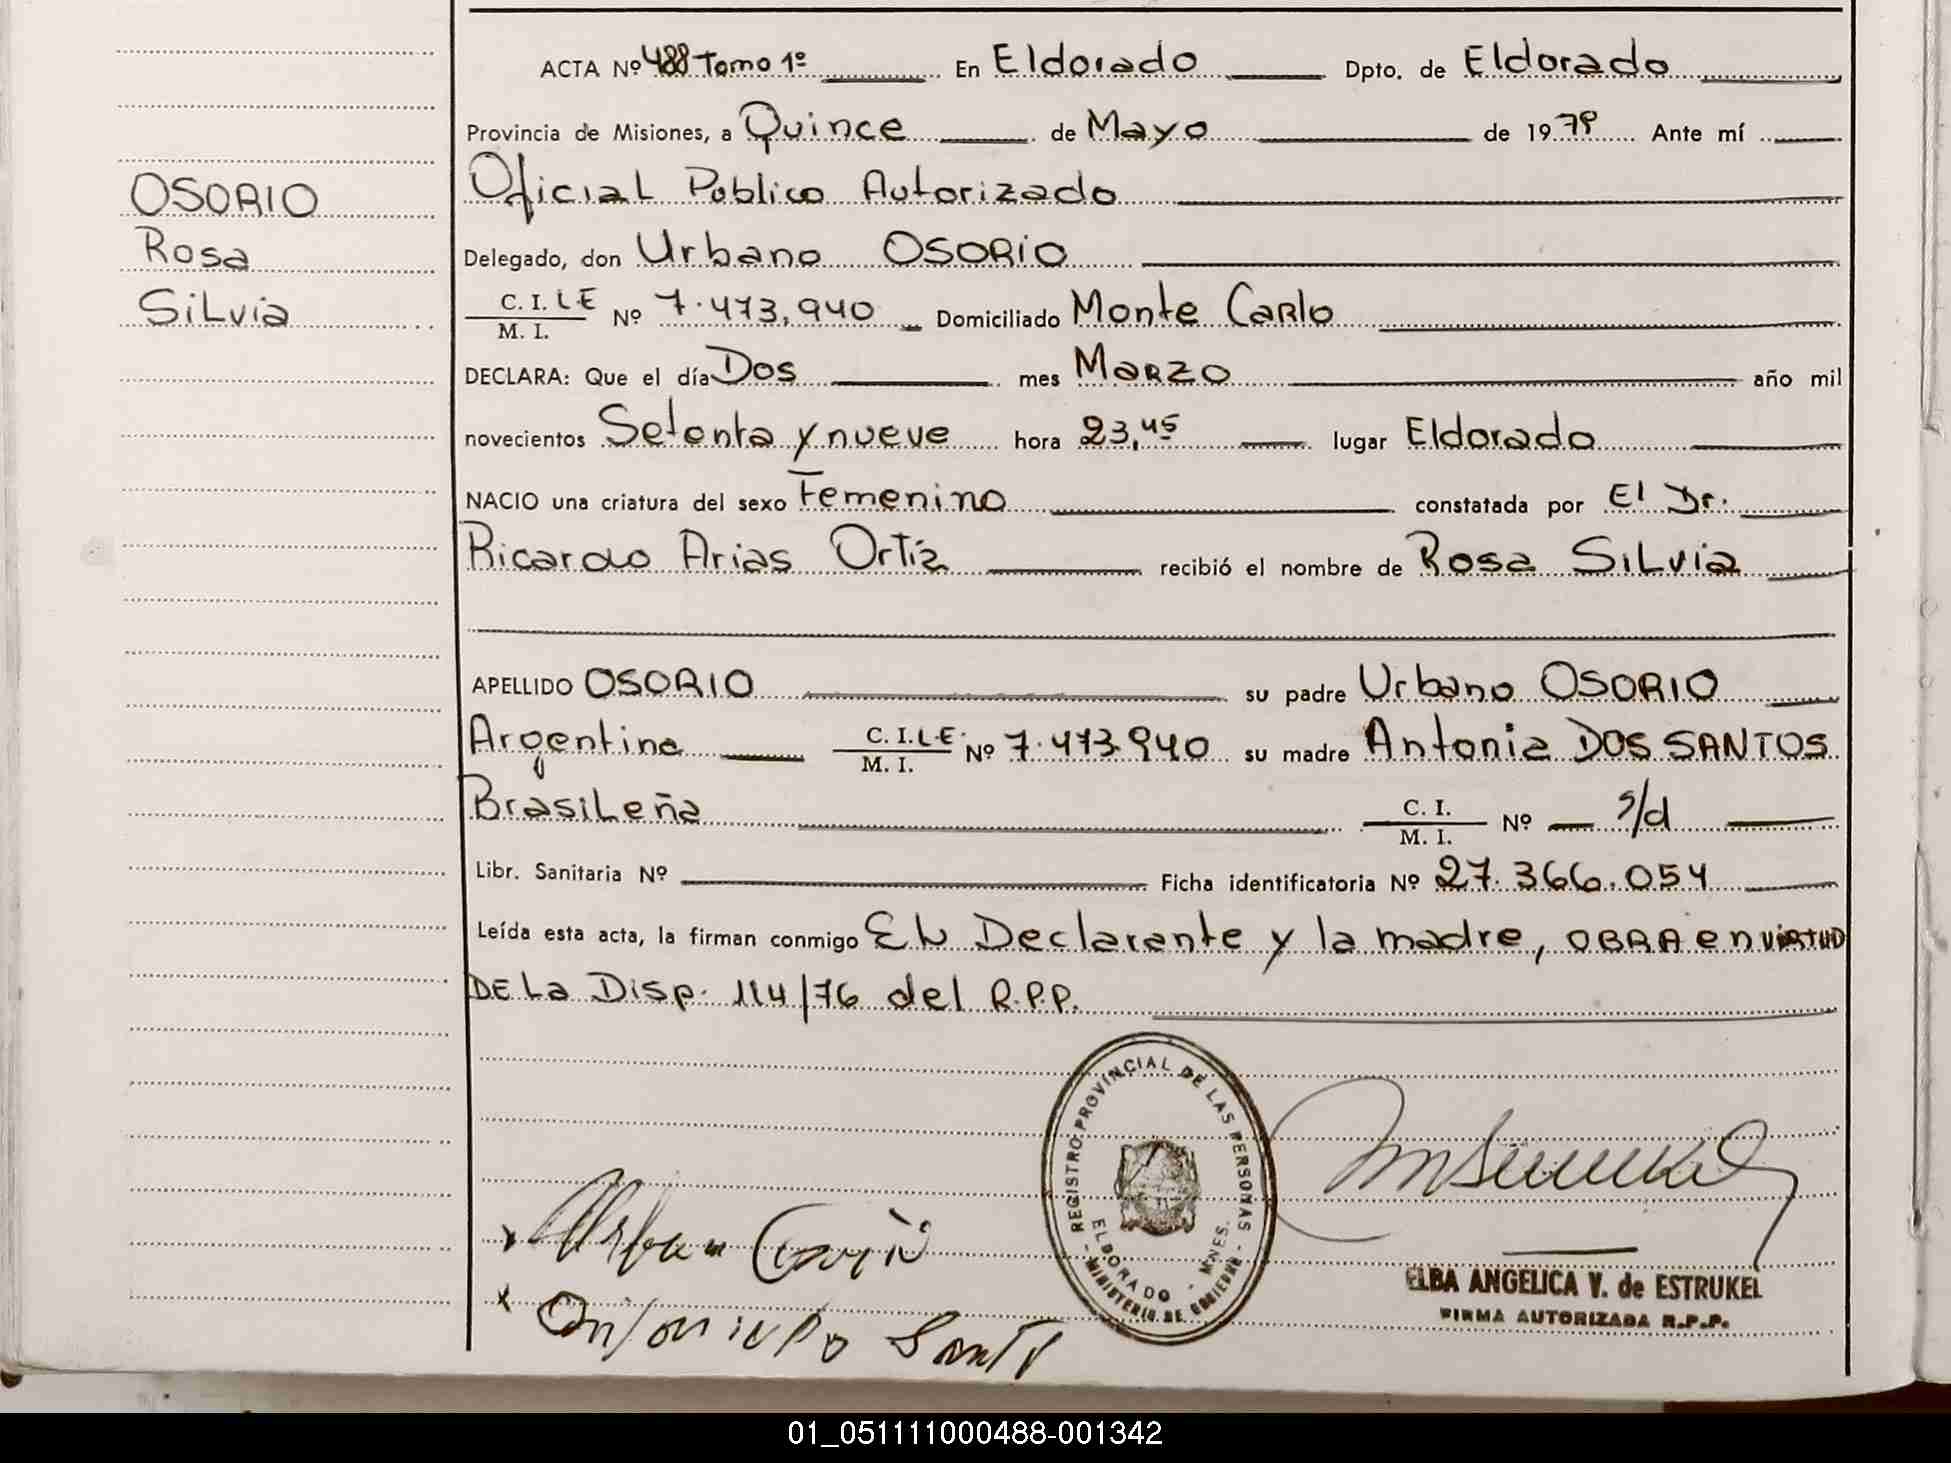 ACTA Nº 488 Tomo 1º En Eldorado Dpto. de Eldorado
Provincia de Misiones, a Quince de Mayo de 1979 Ante mí
Oficial Publico Autorizado
OSORIO
Rosa
Silvia
Delegado, don Urbano OSORIO
C. I. LE Nº 7.473.940 Domiciliado Monte Carlo
M. I.
DECLARA: Que el día Dos mes Marzo año mil
novecientos Setenta y nueve hora 23,45 lugar Eldorado
NACIO una criatura del sexo Femenino constatada por El Dr.
Ricardo Arias Ortiz recibió el nombre de Rosa Silvia
APELLIDO OSORIO su padre Urbano OSORIO
Argentino C. I. LE Nº 7.473.940 su madre Antonia DOS SANTOS
M. I.
Brasileña C. I. Nº s/d
M. I.
Libr. Sanitaria Nº Ficha identificatoria Nº 27.366.054
Leída esta acta, la firman conmigo El Declarante y la madre, OBRA en VIRTUD
DE La Disp. 114/76 del R.P.P.
REGISTRO PROVINCIAL DE LAS PERSONAS
ELDORADO - MNES.
- MINISTERIO DE GOBIERNO -
ELBA ANGELICA V. de ESTRUKEL
FIRMA AUTORIZADA R.P.P.
01_051111000488-001342